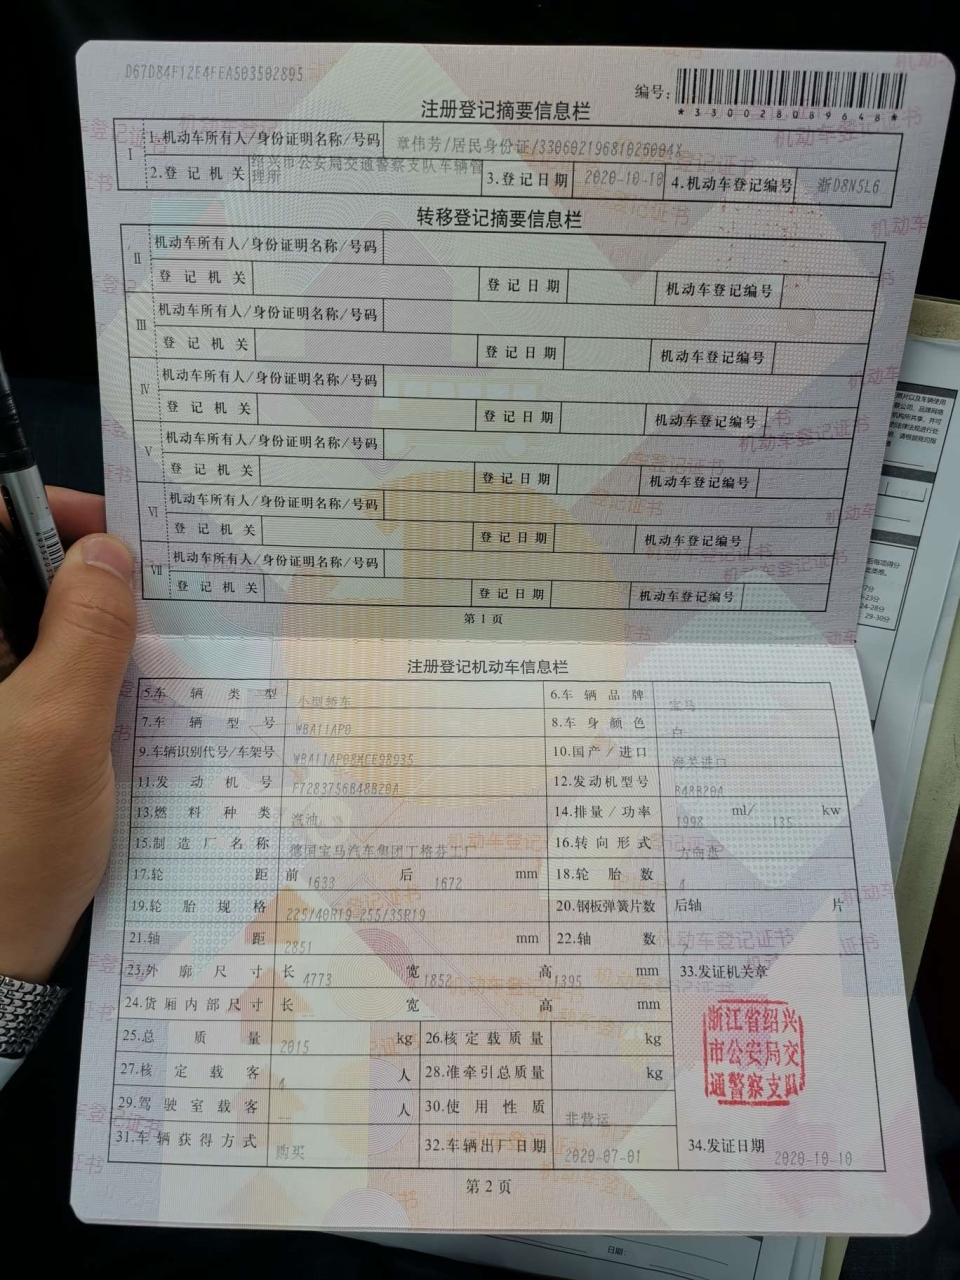 D67D84F12E4FEA503502895
编号:
*330028089648*
注册登记摘要信息栏
I
1.机动车所有人/身份证明名称/号码 章伟芳/居民身份证/33060219681026004X
2.登记机关 绍兴市公安局交通警察支队车辆管理所 3.登记日期 2020-10-10 4.机动车登记编号 浙D8N5L6
转移登记摘要信息栏
II 机动车所有人/身份证明名称/号码
登记机关 登记日期 机动车登记编号
III 机动车所有人/身份证明名称/号码
登记机关 登记日期 机动车登记编号
IV 机动车所有人/身份证明名称/号码
登记机关 登记日期 机动车登记编号
V 机动车所有人/身份证明名称/号码
登记机关 登记日期 机动车登记编号
VI 机动车所有人/身份证明名称/号码
登记机关 登记日期 机动车登记编号
VII 机动车所有人/身份证明名称/号码
登记机关 登记日期 机动车登记编号
第1页
注册登记机动车信息栏
5.车辆类型 小型轿车 6.车辆品牌 宝马
7.车辆型号 WBA11AP0 8.车身颜色 白
9.车辆识别代号/车架号 WBA11AP08MCE98935 10.国产/进口
11.发动机号 F7283756B48B20A 12.发动机型号 B48B20A
13.燃料种类 汽油 14.排量/功率 1998 ml/ 135 kw
15.制造厂名称 德国宝马汽车集团丁格芬工厂 16.转向形式 方向盘
17.轮距 前 1633 后 1672 mm 18.轮胎数 4
19.轮胎规格 225/40R19-255/35R19 20.钢板弹簧片数 后轴 片
21.轴距 2851 mm 22.轴数 2
23.外廓尺寸 长 4773 宽 1852 高 1395 mm 33.发证机关章
24.货厢内部尺寸 长 宽 高 mm
25.总质量 2015 kg 26.核定载质量 kg
27.核定载客 4 人 28.准牵引总质量 kg
29.驾驶室载客 人 30.使用性质 非营运
31.车辆获得方式 购买 32.车辆出厂日期 2020-07-01 34.发证日期 2020-10-10
浙江省绍兴
市公安局交
通警察支队
第2页
日期: